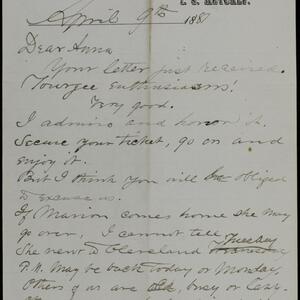 April 9th 1881
Dear Anna
Your letter just received.
Tourgee Enthusiasm!
Very good.
I admire and honor it.
Secure your ticket, go on and
enjoy it.
But I think you will be obliged
to Excuse us.
If Marion comes home she may
go over, I cannot tell
She went to Cleveland Tuesday
P.M. May be back today or Monday,
Others of us are old, busy or